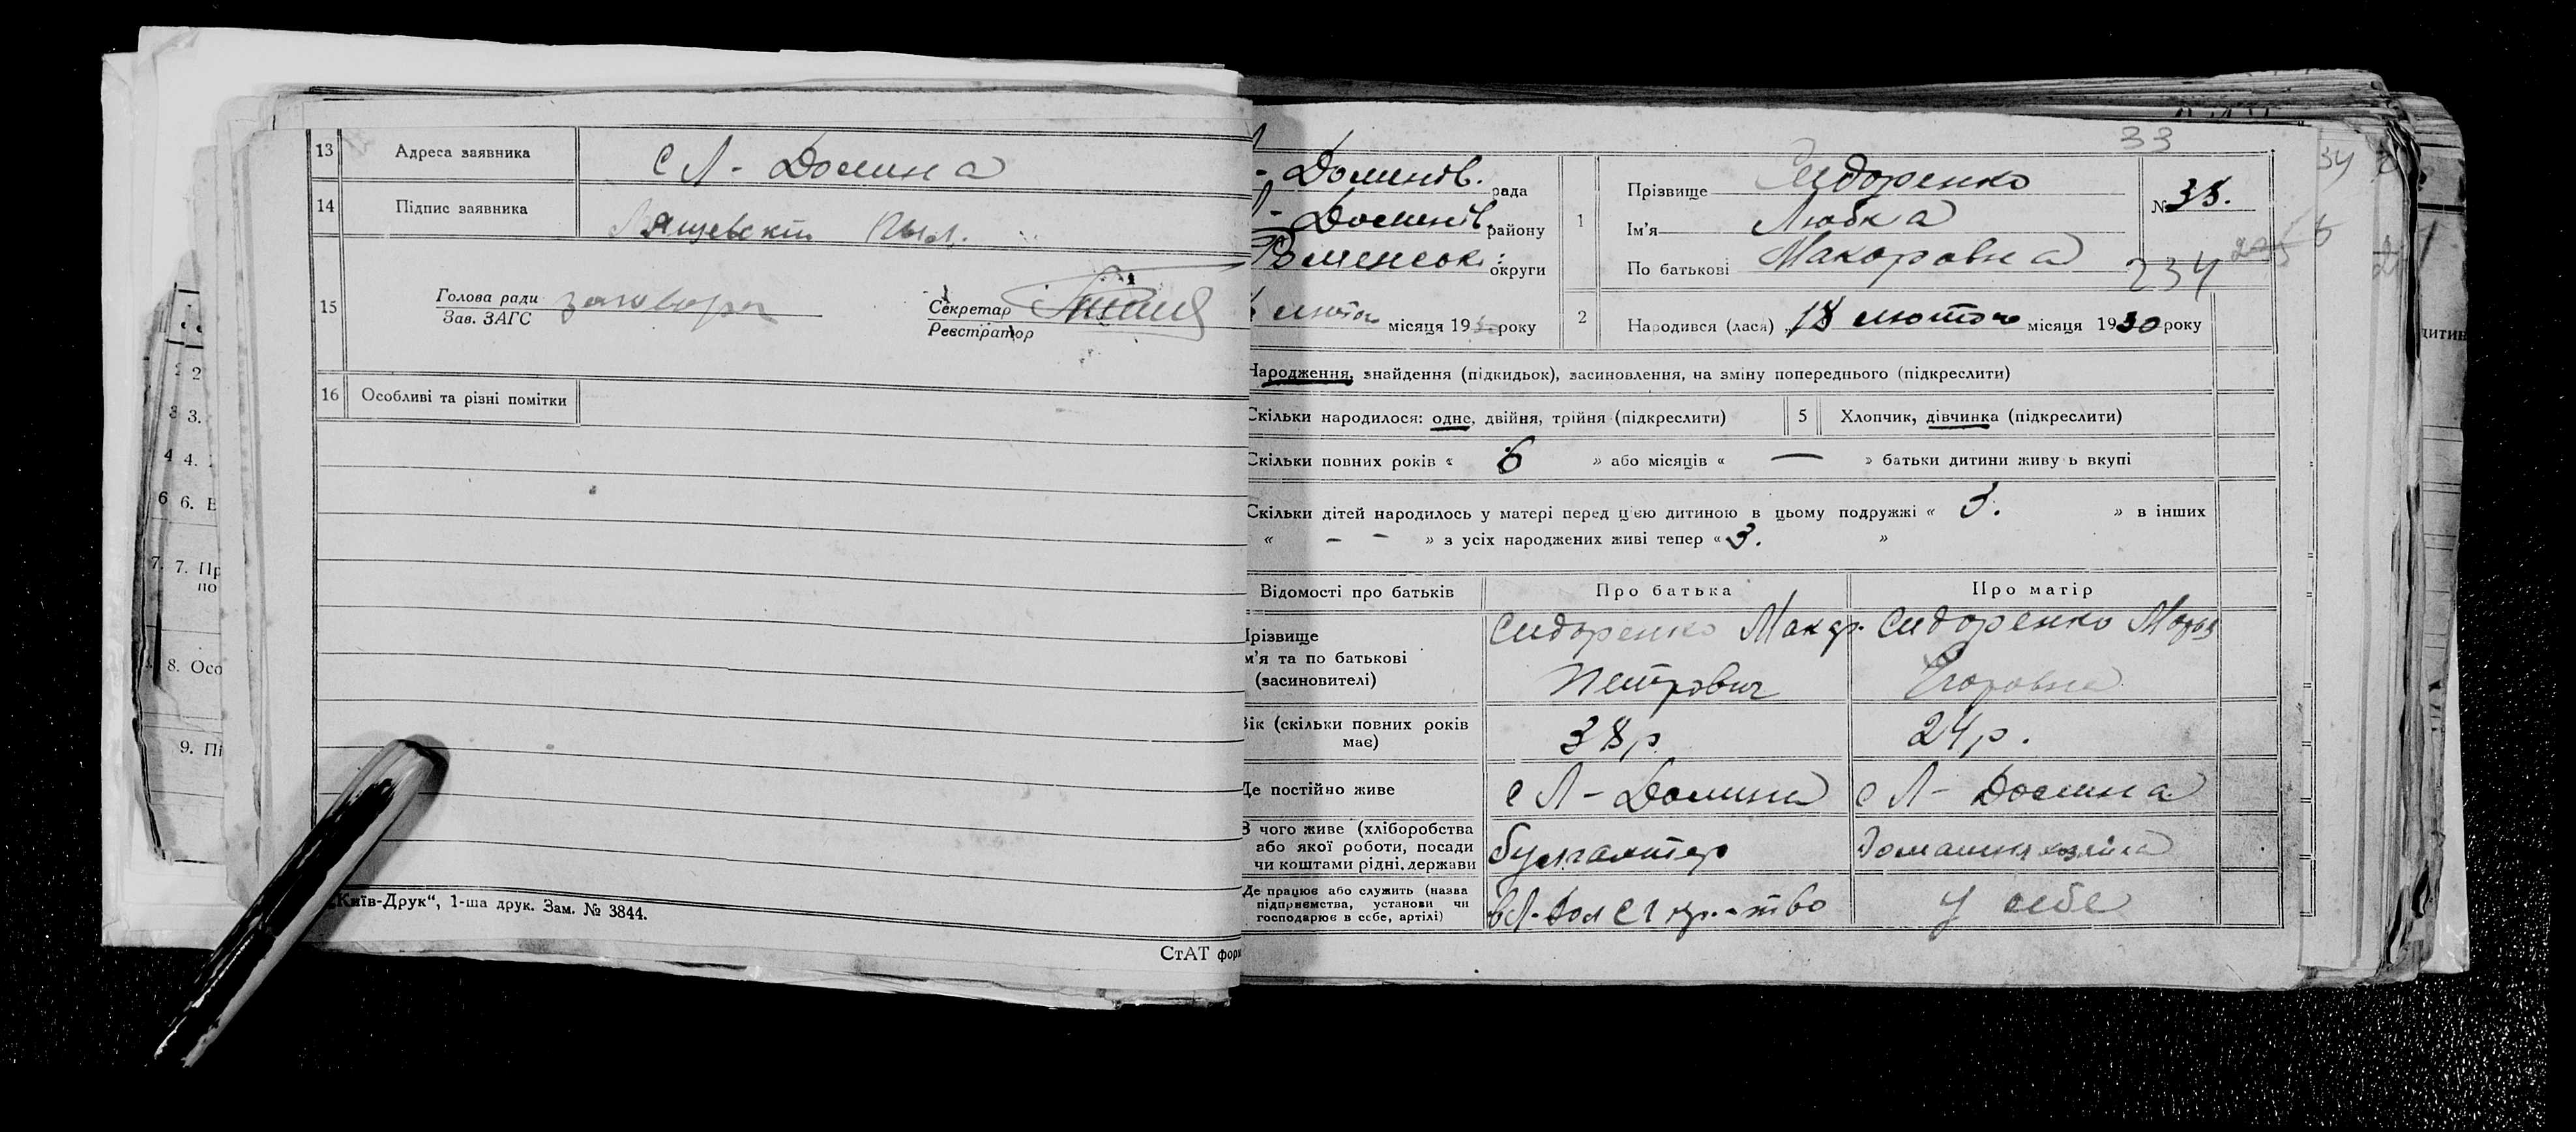 13 Адреса заявника С Л - Долина
14 Підпис заявника Лящевскій
15 Голова ради
Зав. ЗАГС
Секретар
Реєстратор
16 Особливі та різні помітки
„Київ-Друк“, 1-ша друк. Зам. № 3844.
СтАТ фор
2
3.
4.
6. В
7. Пр
по
8. Осо
9. Пі
33
- Долинів. рада
Л - Долинів. району
Роменськ. округи
лютого місяця 1930 року
1 Прізвище Сидоренко
Ім'я Любка
По батькові Макоровна
№ 38.
234
2 Народився (лася) 18 лютого місяця 1930 року
Народження, знайдення (підкидьок), засиновлення, на зміну попереднього (підкреслити)
Скільки народилося: одне, двійня, трійня (підкреслити) 5 Хлопчик, дівчинка (підкреслити)
Скільки повних років « 6 » або місяців « — » батьки дитини живу ь вкупі
Скільки дітей народилось у матері перед цією дитиною в цьому подружжі « 3. » в інших
« - - » з усіх народжених живі тепер « 3. »
Відомості про батьків Про батька Про матір
Прізвище Сидоренко Макар. Сидоренко Марья
м'я та по батькові
(засиновителі) Петрович Егоровна
Вік (скільки повних років має) 38 р. 24 р.
Де постійно живе с Л - Долина с Л - Долина
З чого живе (хліборобства
або якої роботи, посади
чи коштами рідні, держави бухгалтер домашня хазяйка
Де працює або служить (назва
підприємства, установи чи
господарює в себе, артілі) у себе
34
дитин